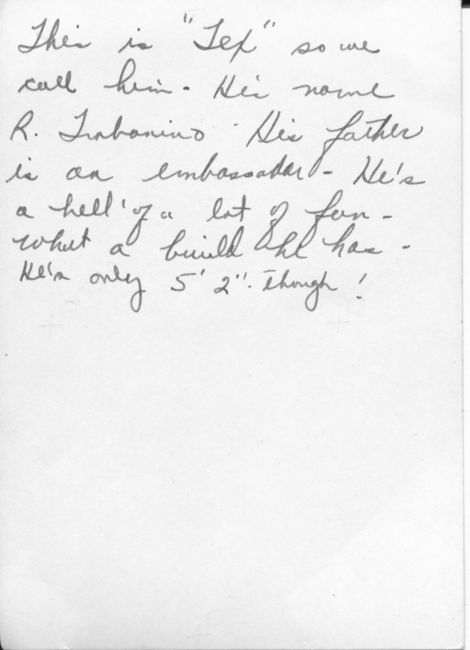 This is "Tex" so we
call him - His name
R. His father
is an embassador - He's
a hell of a lot of fun -
what a build he has -
He's only 5' 2" - though!